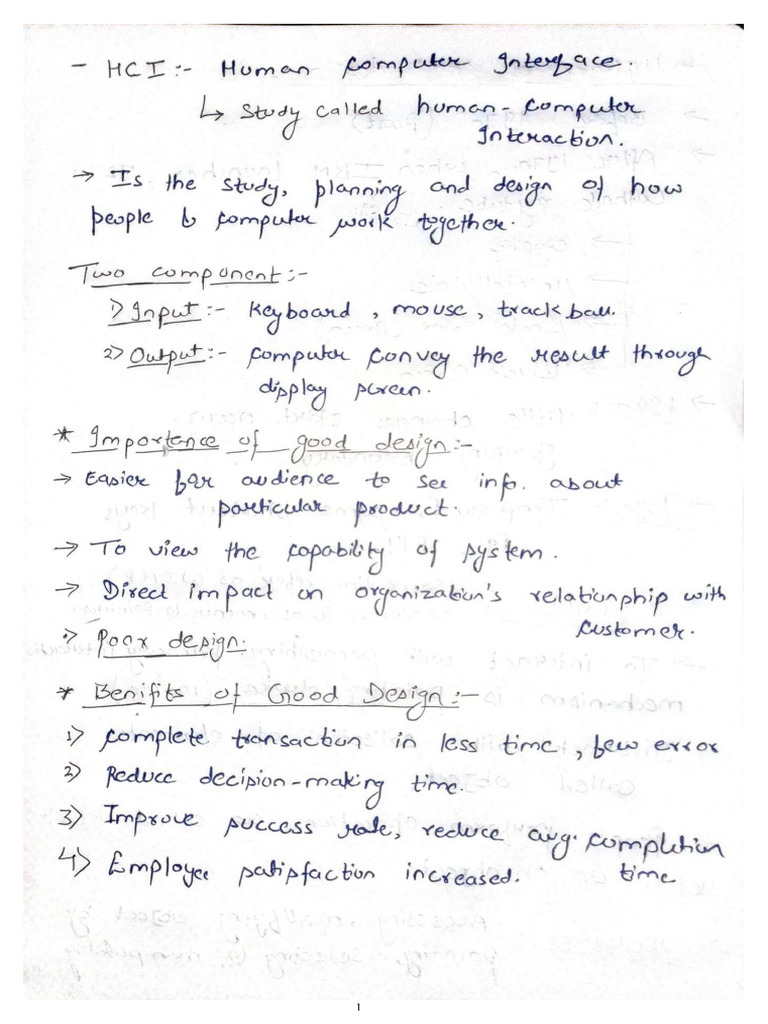 - HCI :- Human Computer Interface.
↳ Study called human-Computer
Interaction.
→ Is the study, planning and design of how
people & computer work together.
Two component :-
1) Input :- Keyboard, mouse, track ball.
2) Output :- Computer convey the result through
display screen.
* Importence of good design :-
→ Easier for audience to see info. about
particular product.
→ To view the capability of system.
→ Direct impact on organization's relationship with
customer.
Poor design.
* Benifits of Good Design :-
1) Complete transaction in less time, few error
2) Reduce decision-making time.
3) Improve success rate, reduce avg. completion
time
4) Employee satisfaction increased.
1